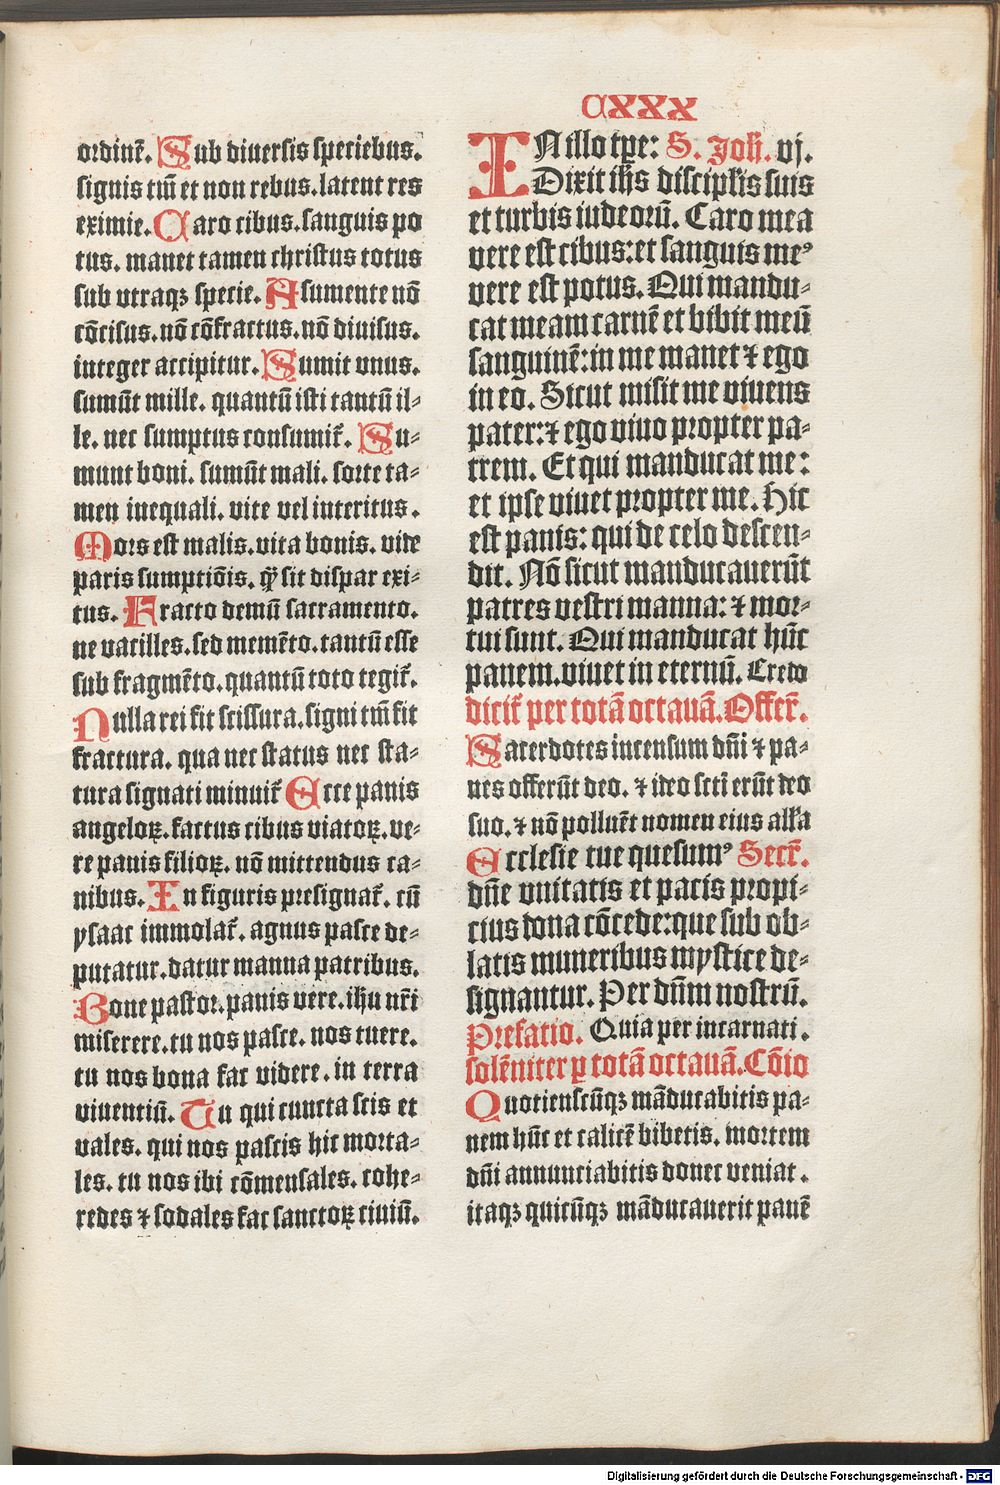 CXXX
ordinē. Sub diuersis speciebus.
signis tm̄ et non rebus. latent res
eximie. Caro cibus. sanguis po
tus. manet tamen christus totus
sub vtraqꝫ specie. A sumente nō
cōcisus. nō cōfractus. nō diuisus.
integer accipitur. Sumit vnus.
sumūt mille. quantū isti tantū il⸗
le. nec sumptus consumit̄. Su⸗
munt boni. sumūt mali. sorte ta⸗
men inequali. vite vel interitus.
Mors est malis. vita bonis. vide
paris sumptiōis. q̄ꝫ sit dispar exi⸗
tus. Fracto demū sacramento.
ne vacilles. sed memēto. tantū esse
sub fragmēto. quantū toto tegit̄.
Nulla rei fit scissura. signi tm̄ fit
fractura. qua nec status nec sta⸗
tura signati minuit̄ Ecce panis
angeloꝝ. factus cibus viatoꝝ. ve⸗
re panis filioꝝ. nō mittendus ca⸗
nibus. In figuris presignat̄. cū
ysaac immolat̄. agnus pasce de⸗
putatur. datur manna patribus.
Bone pastor. panis vere. ihu nr̄i
miserere. tu nos pasce. nos tuere.
tu nos bona fac videre. in terra
viuentiū. Tu qui cuncta scis et
vales. qui nos pascis hic morta⸗
les. tu nos ibi cōmensales. cohe⸗
redes ⁊ sodales fac sanctoꝝ ciuiū.
IN illo tp̄e: S. Joh. vj.
Dixit ih̄s discipl̄is suis
et turbis iudeorū. Caro mea
vere est cibus: et sanguis meꝰ
vere est potus. Qui mandu⸗
cat meam carnē et bibit meū
sanguinē: in me manet ⁊ ego
in eo. Sicut misit me viuens
pater: ⁊ ego viuo propter pa⸗
trem. Et qui manducat me:
et ipse viuet propter me. Hic
est panis: qui de celo descen⸗
dit. Nō sicut manducauerūt
patres vestri manna: ⁊ mor⸗
tui sunt. Qui manducat hūc
panem. viuet in eternū. Credo
dicit̄ per totā octauā. Offer̄.
Sacerdotes incensum dn̄i ⁊ pa⸗
nes offerūt deo. ⁊ ideo sct̄i erūt deo
suo. ⁊ nō polluēt nomen eius all̄a
Ecclesie tue quesumꝰ Secr̄.
dn̄e vnitatis et pacis propi⸗
cius dona cōcede: que sub ob⸗
latis muneribus mystice de⸗
signantur. Per dn̄m nostrū.
Prefatio. Quia per incarnati.
solēniter ꝑ totā octauā. Cōio
Quotienscūqꝫ māducabitis pa⸗
nem hūc et calicē bibetis. mortem
dn̄i annunciabitis donec veniat.
itaqꝫ quicūqꝫ māducauerit panē
Digitalisierung gefördert durch die Deutsche Forschungsgemeinschaft - DFG